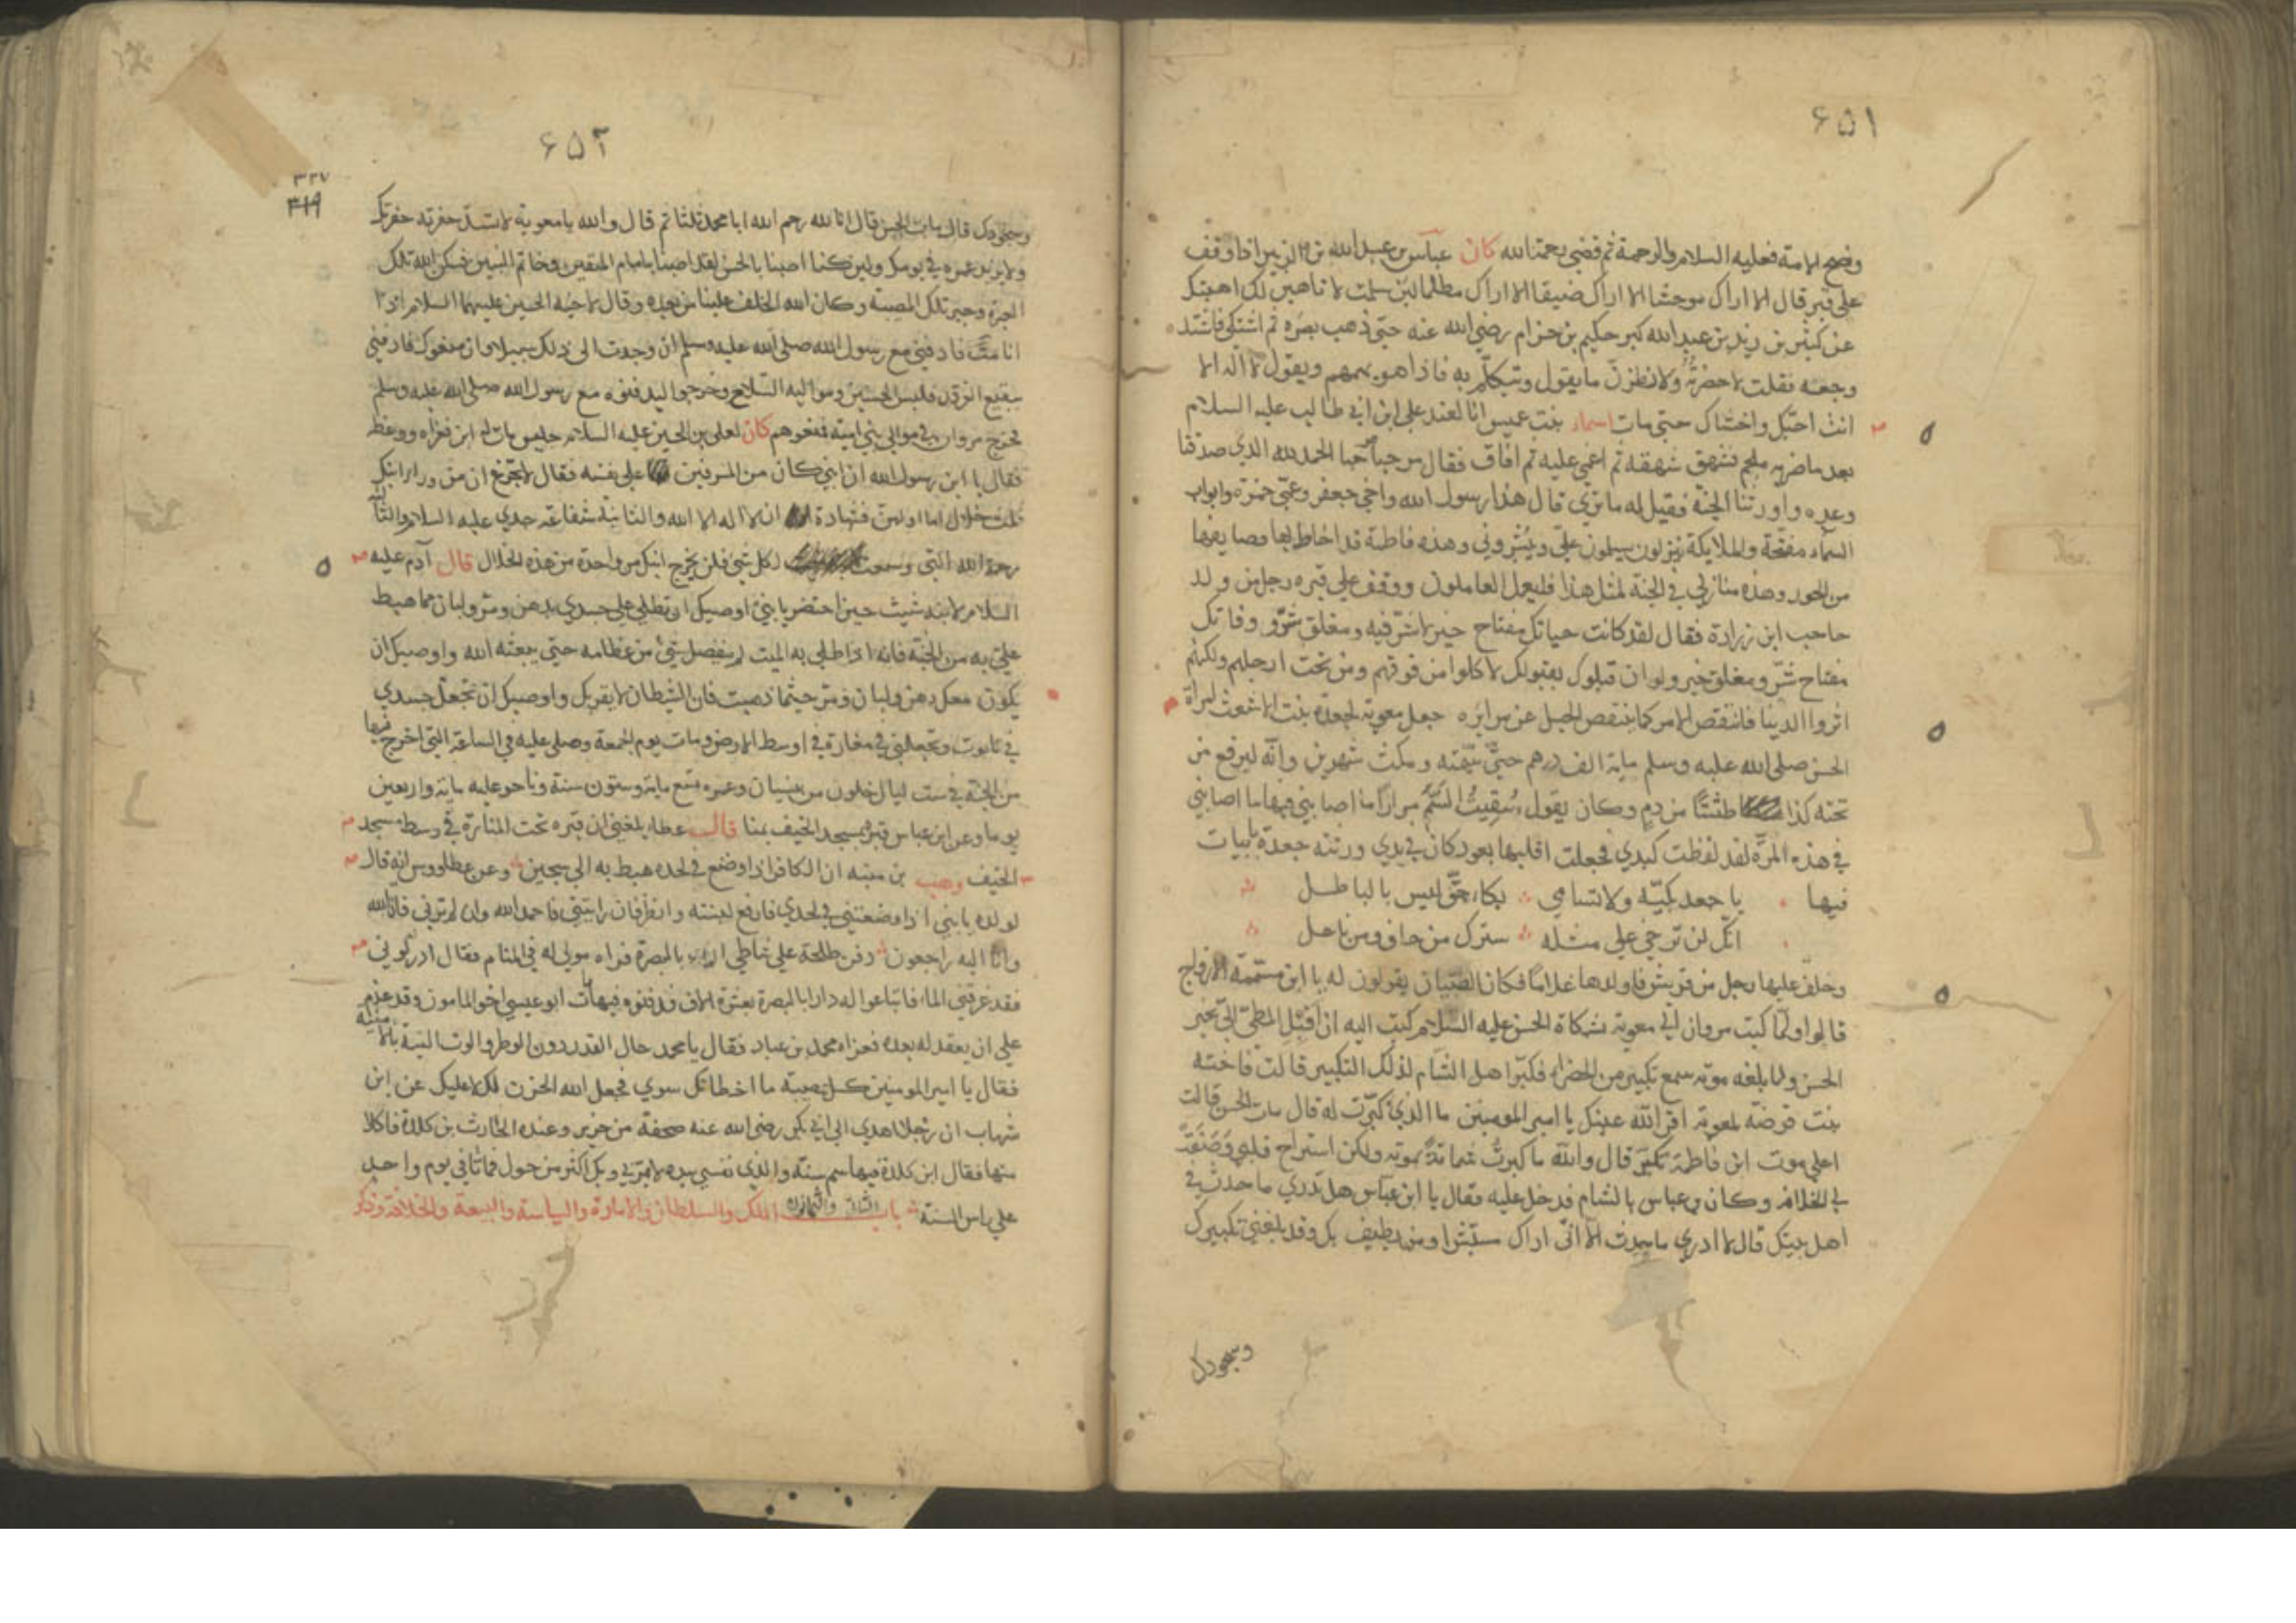 ٦٥١
ونصح الامة فعليه السلام والرحمة ثم قضى رحمة الله كان عباس بن عبد الله بن الزبير اذا وقف
على قبر قال الا اراك موحشا الا اراك ضيقا الا اراك مظلما لئن سلمت لا تاهبن لك اهبتك
عن كثير بن زيد بن عبد الله كبر حكيم بن حزام رضي الله عنه حتى ذهب بصره ثم اشتكى فاشتد
وجعه فقلت لاحضرنه ولانظرن ما يقول ويتكلم به فاذا هو يهمهم ويقول لا اله الا
انت احبك واخشاك حتى مات اسماء بنت عميس انا لعند علي ابن ابي طالب عليه السلام
بعد ما ضربه ملجم فشهق شهقه ثم اغمي عليه ثم افاق فقال مرحبا مرحبا الحمد لله الذي صدقنا
وعده واورثنا الجنة فقيل له ما تري قال هذا رسول الله واخي جعفر وعمي حمزة وابواب
السمآء مفتحة والملايكة ينزلون يسلمون علي ويبشروني وهذه فاطمة قد احاط بها وصايفها
من الحور وهذه منازلي في الجنة لمثل هذا فليعمل العاملون ووقف على قبره رجل من ولد
حاجب ابن زرارة فقال لقد كانت حياتك مفتاح خير لا شر فيه ومغلق شر ووفاتك
مفتاح شر ومغلق خير ولو ان قبلوك بقبولك لاكلوا من فوقهم ومن تحت ارجلهم ولكنهم
اثروا الدينا فانتقض الامر كما ينتقض الحبل عن مرايره جعل معوية لجعدة بنت الاشعث امراة
الحسن صلى الله عليه وسلم ماية الف درهم حتى سمته ومكث شهرين وانه ليرفع من
تحته كذا طشتا من دم وكان يقول سقيت السم مرارا ما اصابني فيها ما اصابني
في هذه المرة لقد لفظت كبدي فجعلت اقلبها بعود كان في يدي ورثته جعدة بابيات
فيها يا جعد بكيه ولا تسامي بكاء حق ليس بالباطل
انك لن ترخي على مثله سترك من حاف ومن ناعل
وخلف عليها رجل من قريش فاولدها غلاما فكان الصبيان يقولون له يا ابن مسممة الازواج
قالوا ولما كتب مروان الى معوية بشكاة الحسن عليه السلام كتب اليه ان اقبل المطي الى بخبر
الحسن ولما بلغه موته سمع تكبير من الخضراء فكبر اهل الشام لذلك التكبير قالت فاخته
بنت قرضة لمعوية اقر الله عينك يا امير المومنين ما الذي كبرت له قال مات الحسن قالت
اعلي موت ابن فاطمة تكبر قال والله ما كبرت شماتة بموته ولكن استراح قلبي وصفت
لي الخلافة وكان بن عباس بالشام فدخل عليه فقال يا ابن عباس هل تدري ما حدث في
اهل بيتك قال لا ادري ما يحدث الا اني اراك مستبشرا ومن يطيف بك وقد بلغني تكبيرك
وسجودك
٦٥٢
٣٢٧
٣١٩
وسجودك قال مات الحسن قال انا لله رحم الله ابا محمد ثلثا ثم قال والله يا معوية لا تسد حفرته حفرتك
ولا يزيد عمره في يومك ولين كنا اصبنا بالحسن لقد اصبنا بامام المتقين وخاتم النبيين فسكن الله تلك
العبرة وجبر تلك المصيبة وكان الله الخلف علينا من بعده وقال لاخيه الحسين عليهما السلام اذا
انا مت فادفني مع رسول الله صلى الله عليه وسلم ان وجدت الى ذلك سبيلا وان منعوك فادفني
ببقيع الغرقد فلبس الحسين ومواليه السلاح وخرجوا ليدفنوه مع رسول الله صلى الله عليه وسلم
فخرج مروان في موالي بني امية فمنعوهم كان لعلي بن الحسين عليه السلام جليس مات له ابن فعزاه ووعظه
فقال يا ابن رسول الله ان ابني كان من المسرفين على نفسه فقال لا تجزع ان من ورا ابنك
ثلث خلال اما اولهن فشهادة ان لا اله الا الله والثانية شفاعة جدي عليه السلام والثالثة
رحمة الله التي وسعت كل شي فلن يخرج ابنك من واحدة من هذه الخلال قال آدم عليه
السلام لابنه شيث حين احتضر يا بني اوصيك ان تطلي على جسدي بدهن ومر ولبان مما هبط
علي به من الجنة فانه اذا طلي به الميت لم ينفصل شي من عظامه حتى يبعثه الله واوصيك ان
يكون معك دهن ولبان ومر حيثما ذهبت فان الشيطان لا يقربك واوصيك ان تجعل جسدي
في تابوت وتجعلني في مغارة في اوسط الارض ومات يوم الجمعة وصلى عليه في الساعة التي اخرج فيها
من الجنة في ست ليال خلون من نيسان وعمره تسع ماية وستون سنة وناحو عليه ماية واربعين
يوما وعن ابن عباس قبره بمسجد الخيف بمنا قال عطاء بلغني ان قبره تحت المنارة في وسط مسجد
الخيف وهب بن منبه ان الكافر اذا وضع في لحده هبط به الى سجين وعن عطا ووس انه قال
لولده يا بني اذا وضعتني في لحدي فارفع لبنته وانظر فان رايتني فاحمد الله وان لم ترني فانا لله
وانا اليه راجعون دفن طلحة على شاطي بالبصرة فراه مولى له في المنام فقال ادركوني
فقد غرقني الماء فابتاعوا له دارا بالبصرة بعشرة الاف فدفنوه فيها مات ابو عيسى اخو المامون وقد عزم
على ان يعقد له بعده فعزاه محمد بن عباد فقال يا محمد حال القدر دون الوطر والوت المنية بالامنية
فقال يا امير المومنين كل مصيبة ما اخطاتك سوي فجعل الله الحزن لك لا عليك عن ابن
شهاب ان رجلا اهدي الى ابي بكر رضي الله عنه صحفة من خزير وعنده الحارث بن كلدة فاكلا
منها فقال ابن كلدة فيها سم سنة والذي نفسي بيده لا يمر بي وبك اكثر من حول فماتا في يوم واحد
على راس السنة باب الملك والسلطان والامارة والسياسة والبيعة والخلافة وذكر